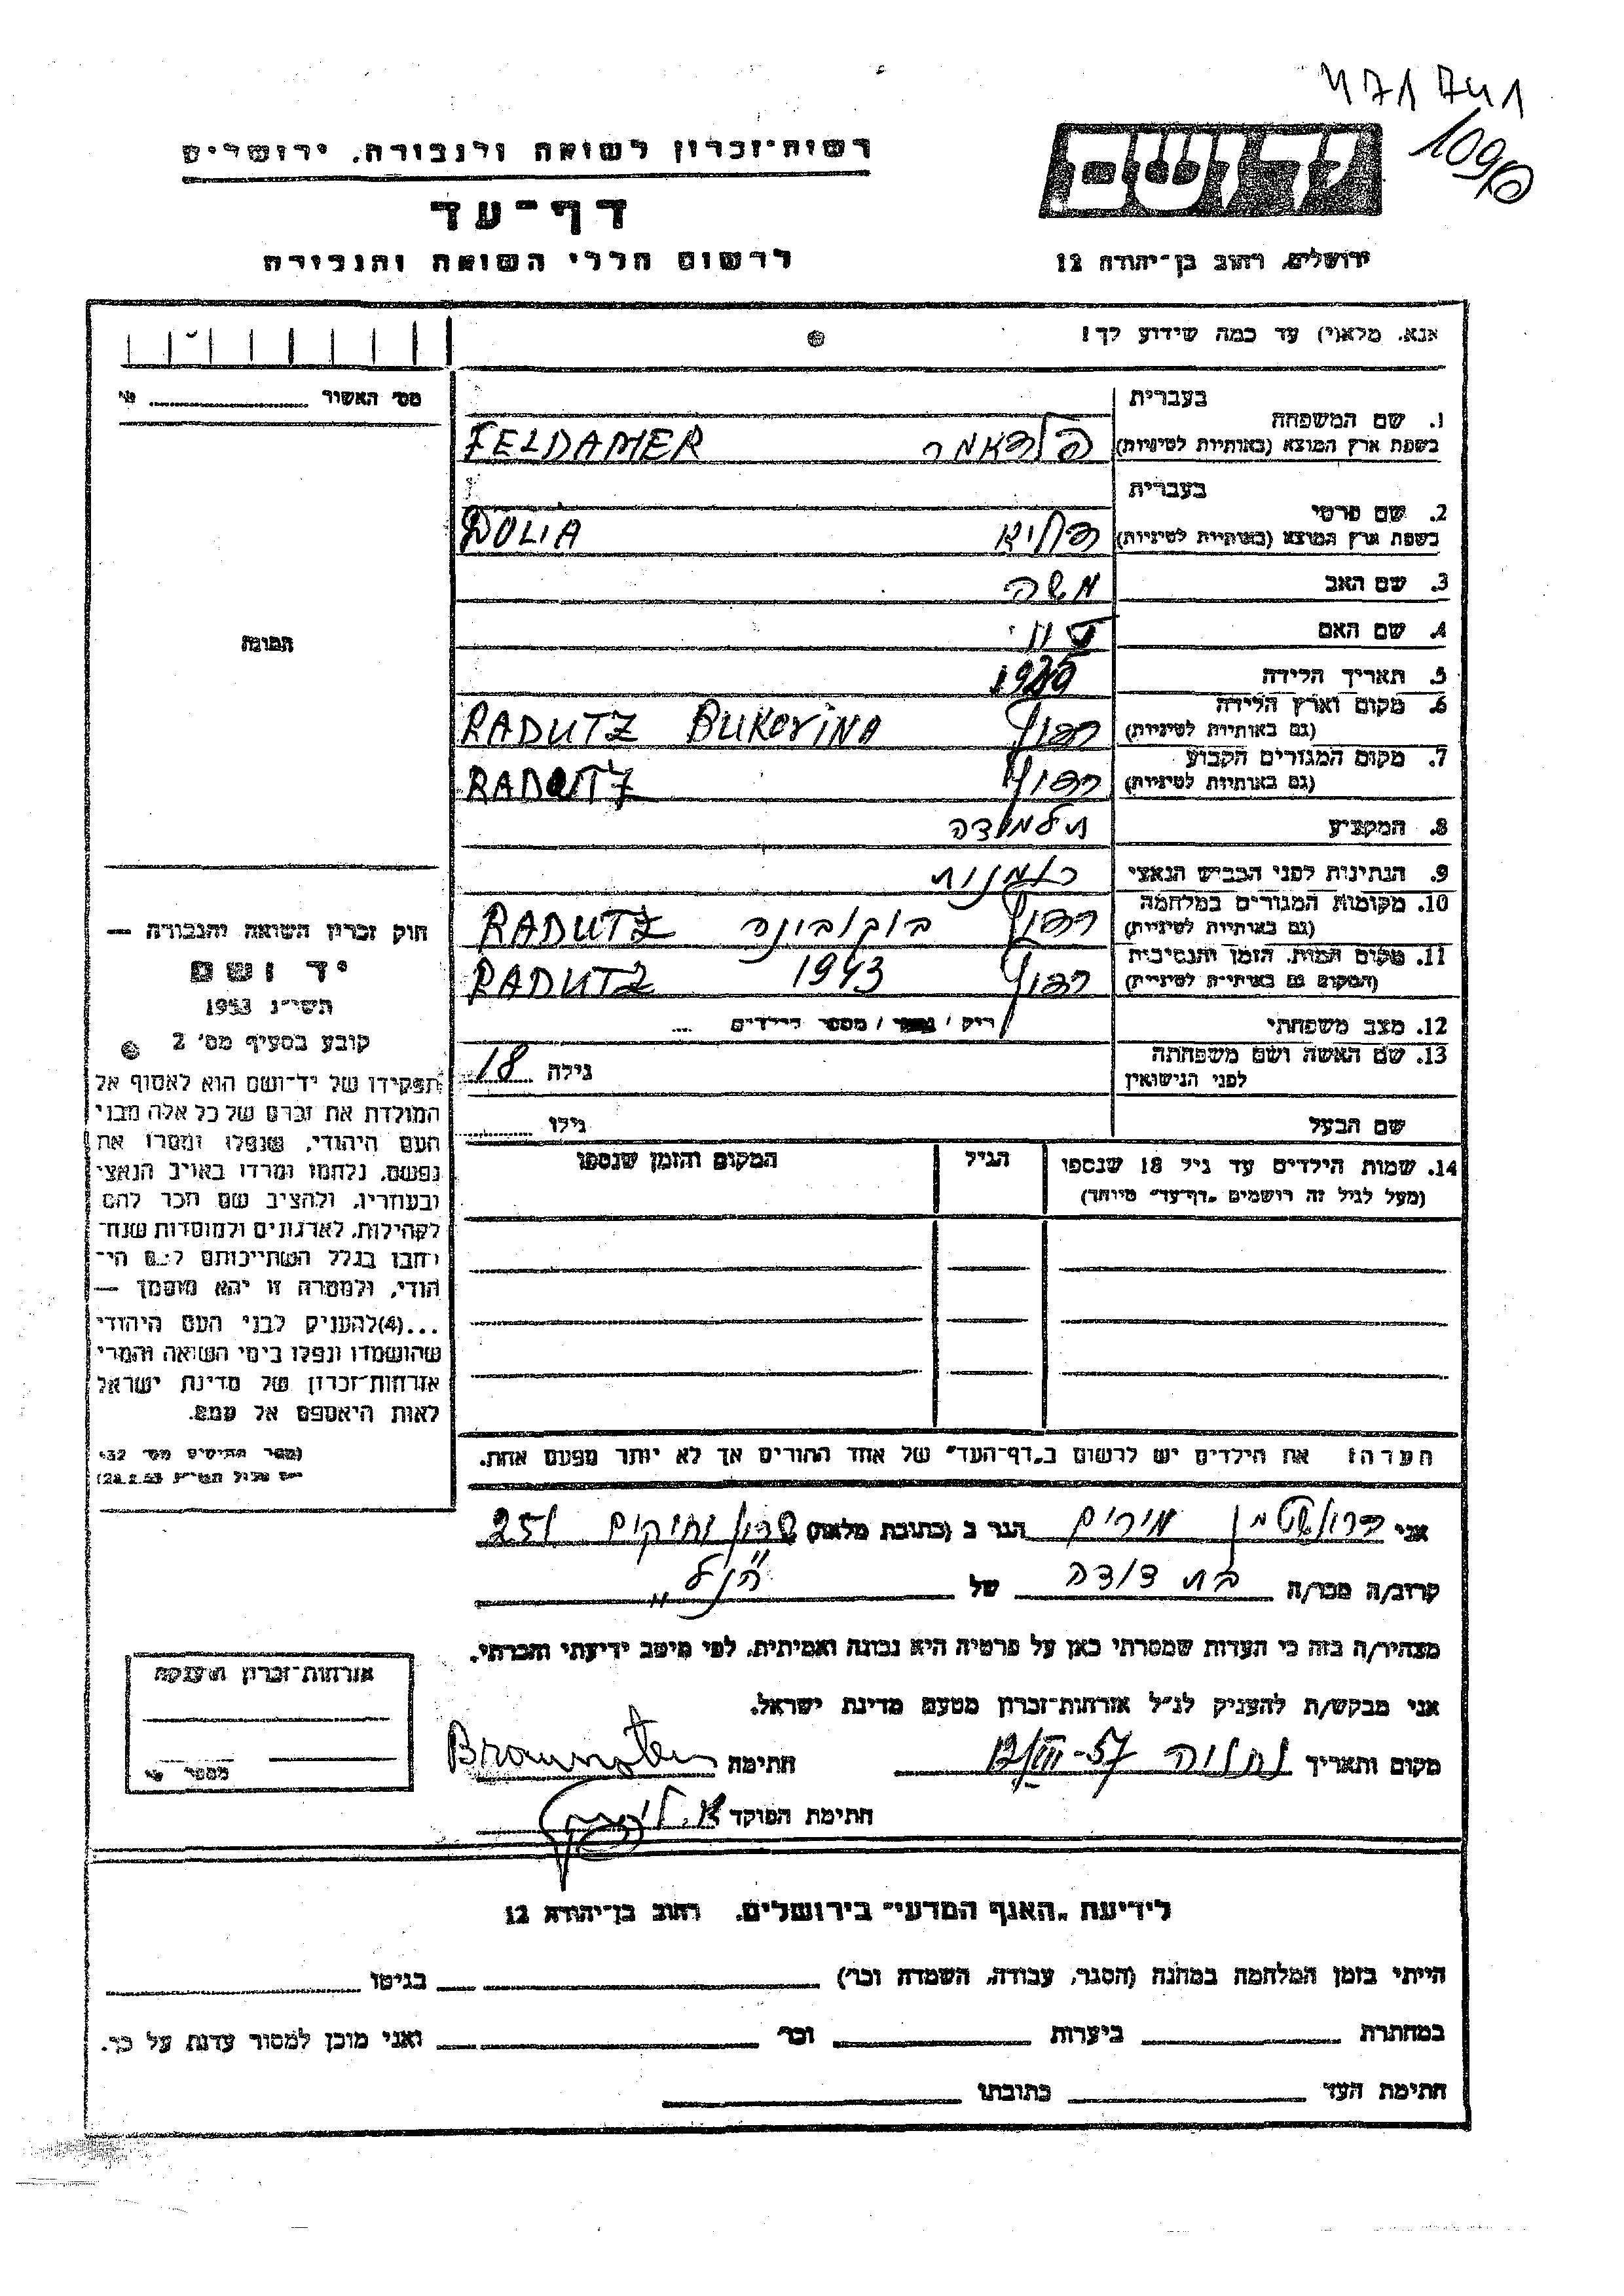 471741
109
רשות־זכרון לשואה ולגבורה, ירושלים
דף־עד
לרשום חללי השואה והגבורה
ידושם
ירושלים, רחוב בן־יהודה 12
אנא, מלא(י) עד כמה שידוע לך!
מס׳ האשור
1. שם המשפחה בעברית
בשפת ארץ המוצא (באותיות לטיניות) פלדאמר FELDAMER
2. שם פרטי בעברית
בשפת ארץ המוצא (באותיות לטיניות) דוליא DOLIA
3. שם האב משה
4. שם האם
5. תאריך הלידה
6. מקום וארץ הלידה
(גם באותיות לטיניות) רדוץ RADUTZ BUKOVINA
7. מקום המגורים הקבוע
(גם באותיות לטיניות) רדוץ RADUTZ
8. המקצוע תלמידה
9. הנתינות לפני הכבוש הנאצי רומנית
10. מקומות המגורים במלחמה
(גם באותיות לטיניות) רדוץ בוקובינה RADUTZ
11. מקום המות, הזמן והנסיבות
(המקום גם באותיות לטיניות) רדוץ 1943 RADUTZ
12. מצב משפחתי רוק / נשוי / מספר הילדים ...
13. שם האשה ושם משפחתה
לפני הנישואין גילה 18
שם הבעל גילו
14. שמות הילדים עד גיל 18 שנספו הגיל המקום והזמן שנספו
(מעל לגיל זה רושמים „דף־עד״ מיוחד)
הערה: את הילדים יש לרשום ב„דף־העד״ של אחד ההורים אך לא יותר מפעם אחת.
תמונה
חוק זכרון השואה והגבורה —
יד ושם
תשי״ג 1953
קובע בסעיף מס׳ 2
תפקידו של יד־ושם הוא לאסוף אל
המולדת את זכרם של כל אלה מבני
העם היהודי, שנפלו ומסרו את
נפשם, נלחמו ומרדו באויב הנאצי
ובעוזריו, ולהציב שם וזכר להם
לקהילות, לארגונים ולמוסדות שנח־
רבו בגלל השתייכותם לעם הי־
הודי, ולמטרה זו יהא מוסמך —
...(4) להעניק לבני העם היהודי
שהושמדו ונפלו בימי השואה והמרי
אזרחות־זכרון של מדינת ישראל
לאות היאספם אל עמם.
(ספר החוקים מס׳ 132
28.8.53)
אני ברונשטין מרים הגר ב (כתובת מלאה) שכון ותיקים 251
קרוב/ה מכר/ה בת דודה של הנ״ל
מצהיר/ה בזה כי העדות שמסרתי כאן על פרטיה היא נכונה ואמיתית, לפי מיטב ידיעתי והכרתי.
אני מבקש/ת להעניק לנ״ל אזרחות־זכרון מטעם מדינת ישראל.
מקום ותאריך נתניה 12/VIII-57 חתימה Braunstein
חתימת הפוקד
אזרחות־זכרון הוענקה
מספר
לידיעת „האגף המדעי״ בירושלים, רחוב בן־יהודה 12
הייתי בזמן המלחמה במחנה (הסגר, עבודה, השמדה וכו׳) בגיטו
במחתרת ביערות וכו׳ ואני מוכן למסור עדות על כך.
חתימת העד כתובתו